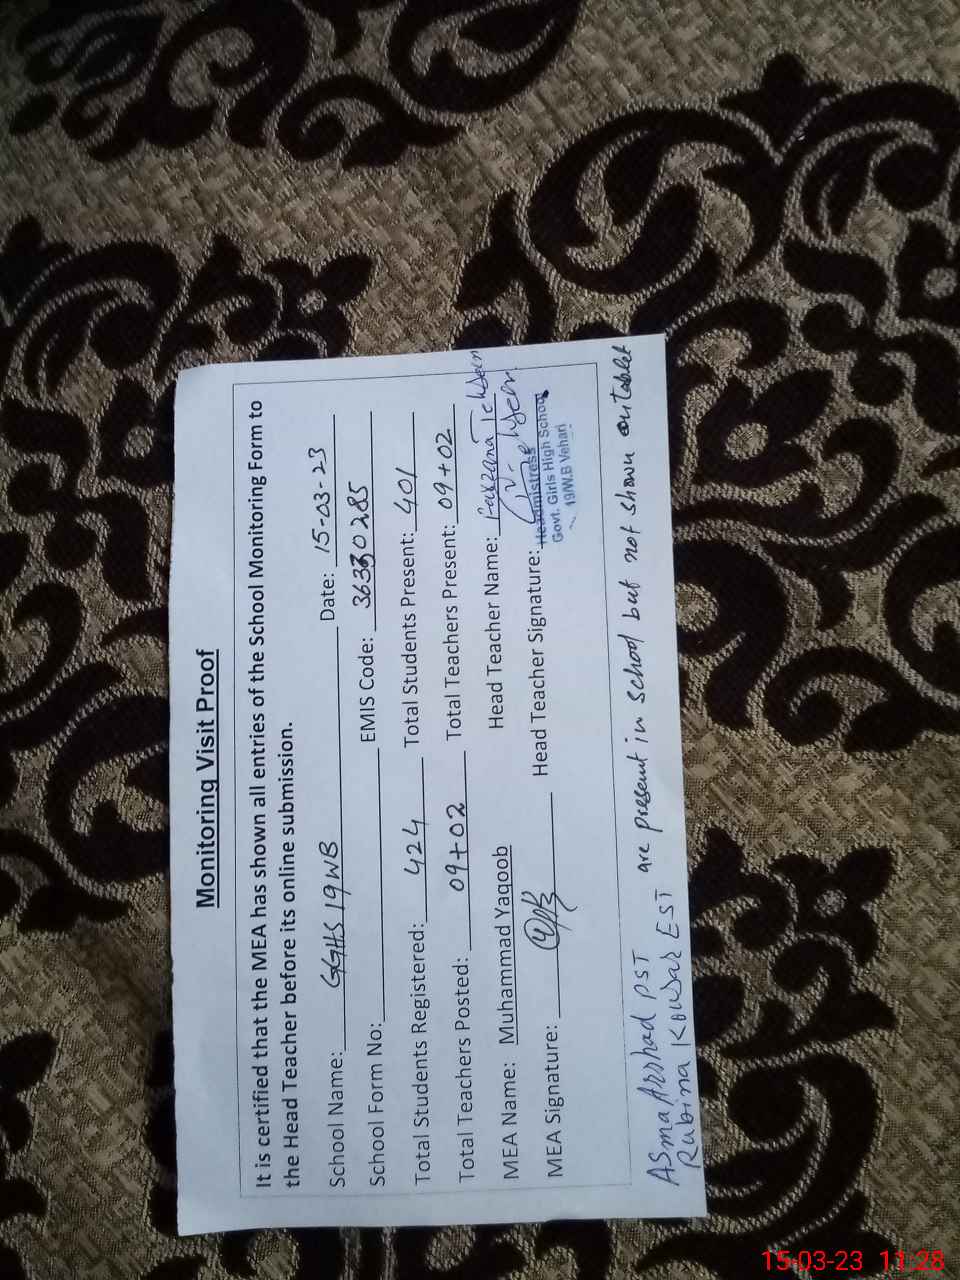 Monitoring Visit Proof
It is certified that the MEA has shown all entries of the School Monitoring Form to
the Head Teacher before its online submission.
School Name: GGHS 19WB Date: 15-03-23
School Form No: EMIS Code: 36330285
Total Students Registered: 424 Total Students Present: 401
Total Teachers Posted: 09+02 Total Teachers Present: 09+02
MEA Name: Muhammad Yaqoob Head Teacher Name: Farzana Tehseen
MEA Signature: Head Teacher Signature: Tehseen
Headmistress
Govt. Girls High School
19/W.B Vehari
ASma Arshad PST are present in school but not shown on tablet
Rubina Kousar EST
15-03-23 11:28